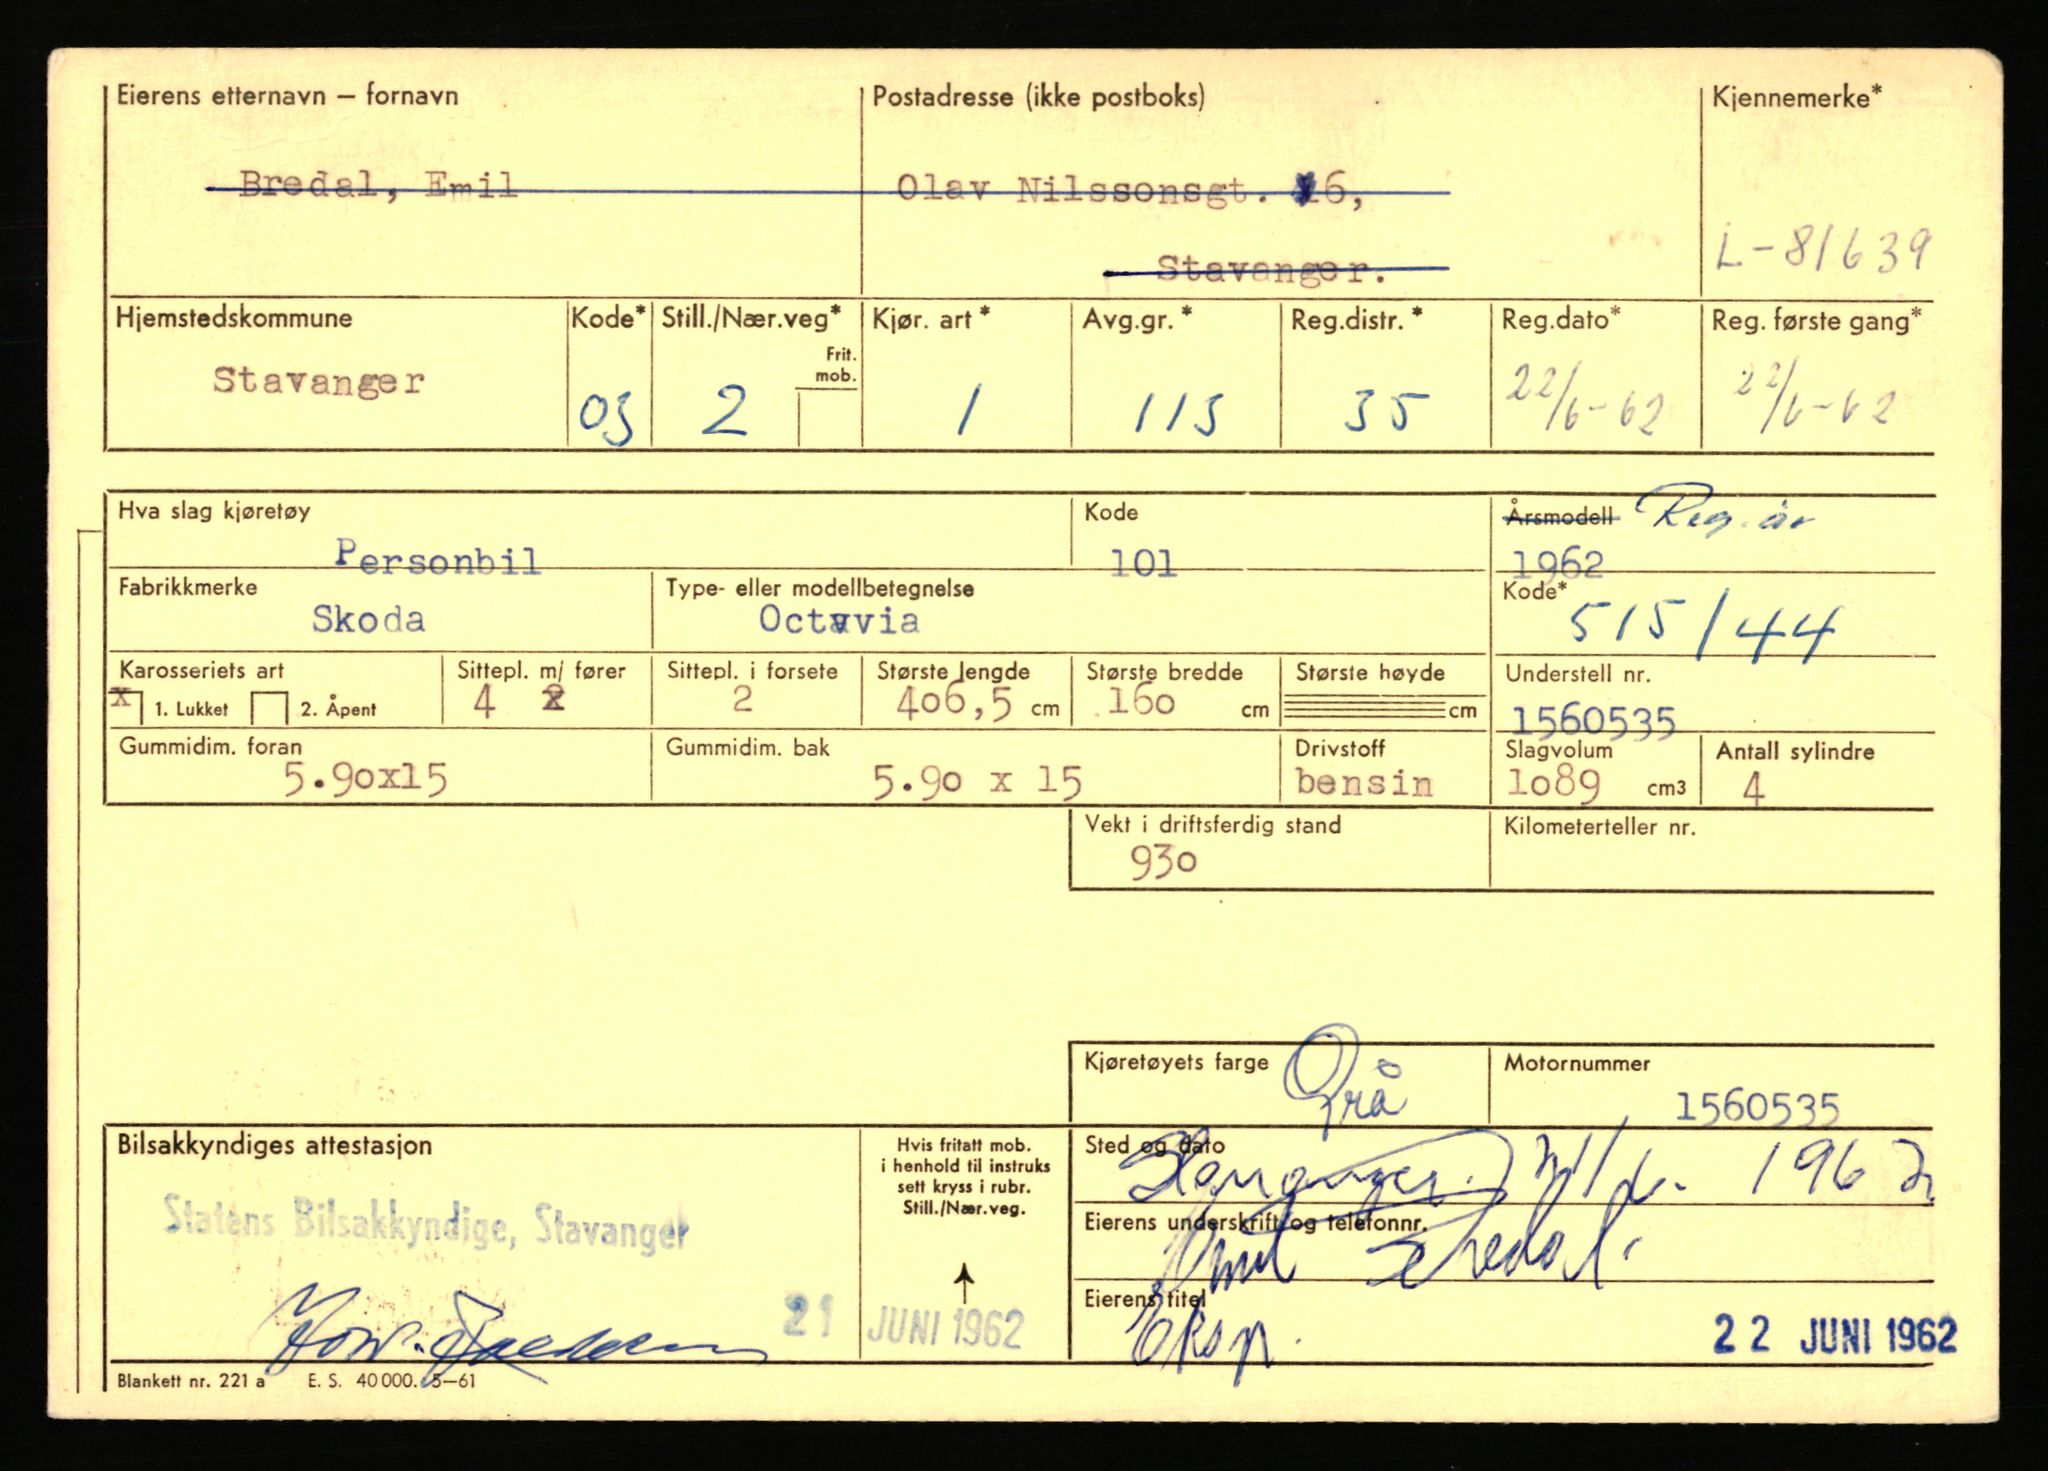 Eierens etternavn – fornavn
Postadresse (ikke postboks)
Kjennemerke*
Bredal, Emil
Olav Nilssonsgt. 6,
Stavanger.
L-81639
Hjemstedskommune
Kode*
Still./Nær.veg*
Frit. mob.
Kjør. art*
Avg.gr.*
Reg.distr.*
Reg.dato*
Reg. første gang*
Stavanger
03
2
1
113
35
22/6-62
22/6-62
Hva slag kjøretøy
Kode
Årsmodell Reg. år
Personbil
101
1962
Fabrikkmerke
Type- eller modellbetegnelse
Kode*
Skoda
Octavia
515/44
Karosseriets art
Sittepl. m/ fører
Sittepl. i forsete
Største lengde
Største bredde
Største høyde
Understell nr.
x 1. Lukket 2. Åpent
4
2
406,5 cm
160 cm
cm
1560535
Gummidim. foran
Gummidim. bak
Drivstoff
Slagvolum
Antall sylindre
5.90x15
5.90 x 15
bensin
1089 cm3
4
Vekt i driftsferdig stand
Kilometerteller nr.
930
Kjøretøyets farge
Grå
Motornummer
1560535
Bilsakkyndiges attestasjon
Hvis fritatt mob.
i henhold til instruks
sett kryss i rubr.
Still./Nær.veg.
Sted og dato
Stavanger. 21/6. 1962
Statens Bilsakkyndige, Stavanger
Eierens underskrift og telefonnr.
Emil Bredal.
Eierens titel
Eksp.
21 JUNI 1962
22 JUNI 1962
Blankett nr. 221 a E. S. 40 000. 5–61